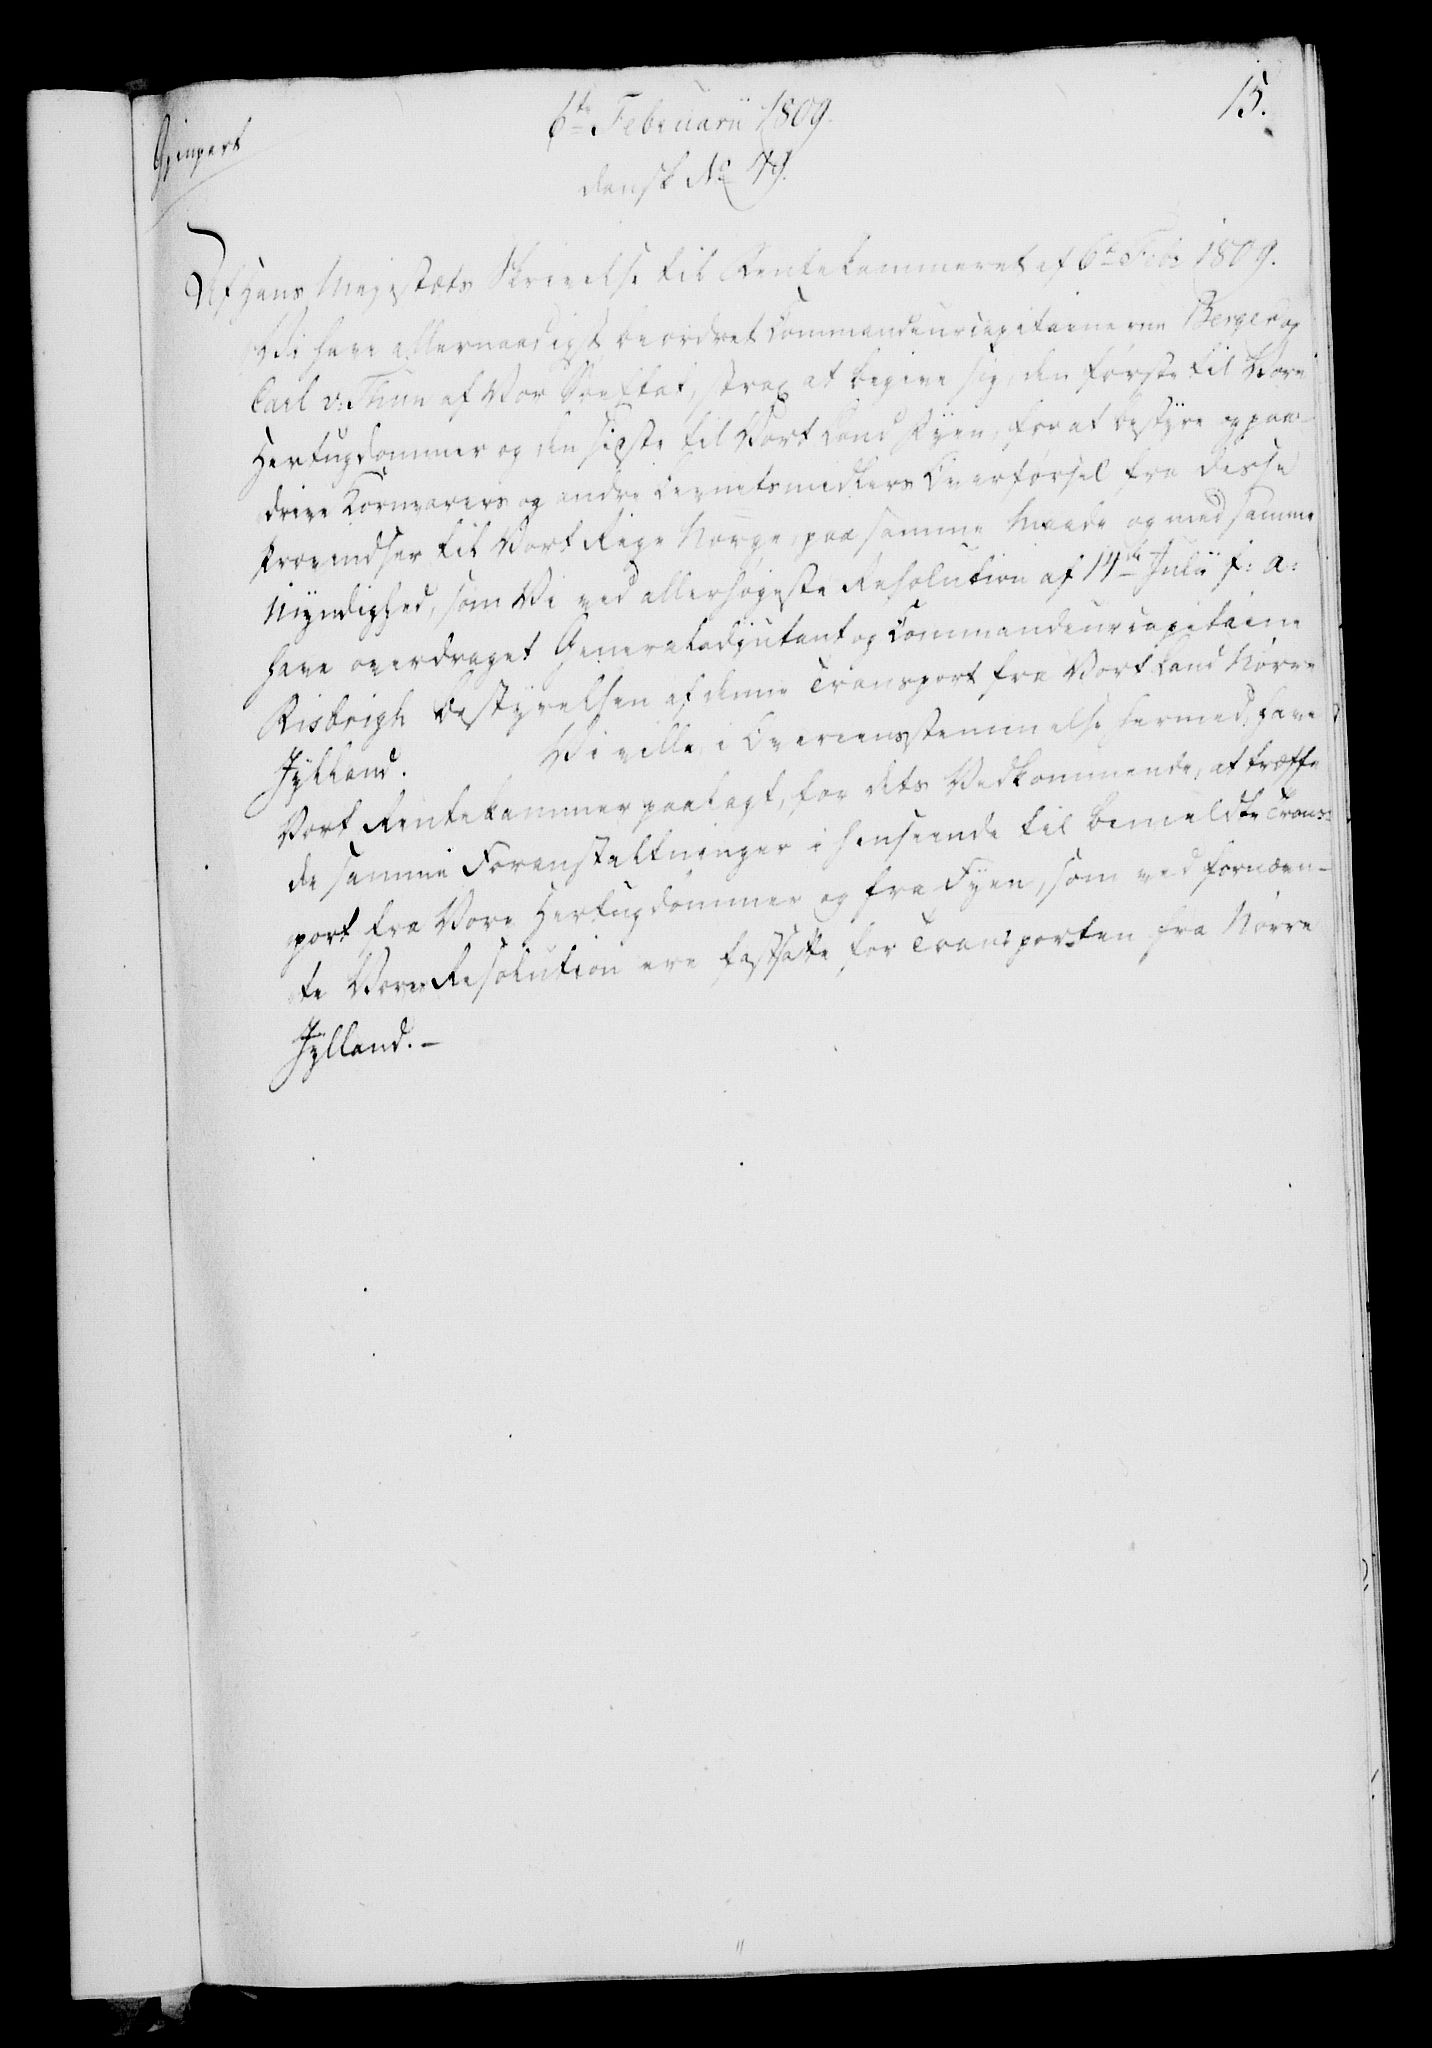 15.
6te Februarii 1809.
dansk No 49.
Gjenpart
Af Hans Majestæts Skrivelse til Rentekammeret af 6te Febr 1809.
Vi have allernaadigst beordret Commandeurcapitainerne Berger og
Carl v. Thun af Vor Søe Etat, strax at begive sig, den første til Vore
Hertugdommer og den sidste til Vort Land Fyen, for at bestyre og paa-
drive Kornvarers og andre Levnetsmidlers Overførsel fra disse
Provindser til Vort Rige Norge, paa samme Maade og med samme
Myndighed, som Vi ved allerhøyeste Resolution af 14de Julii f: a:
have overdraget Generaladjutant og Commandeurcapitaine
Risbrigh Bestyrelsen af denne Transport fra Vort Land Nørre
Jylland. Vi ville, i Overeensstemmelse hermed, have
Vort Rentekammer paalagt, for dets Vedkommende, at træffe
de samme Foranstaltninger i Henseende til bemeldte Trans-
port fra Vore Hertugdommer og fra Fyen, som ved fornævn-
te Vores Resolution ere fastsatte for Transporten fra Nørre
Jylland. –